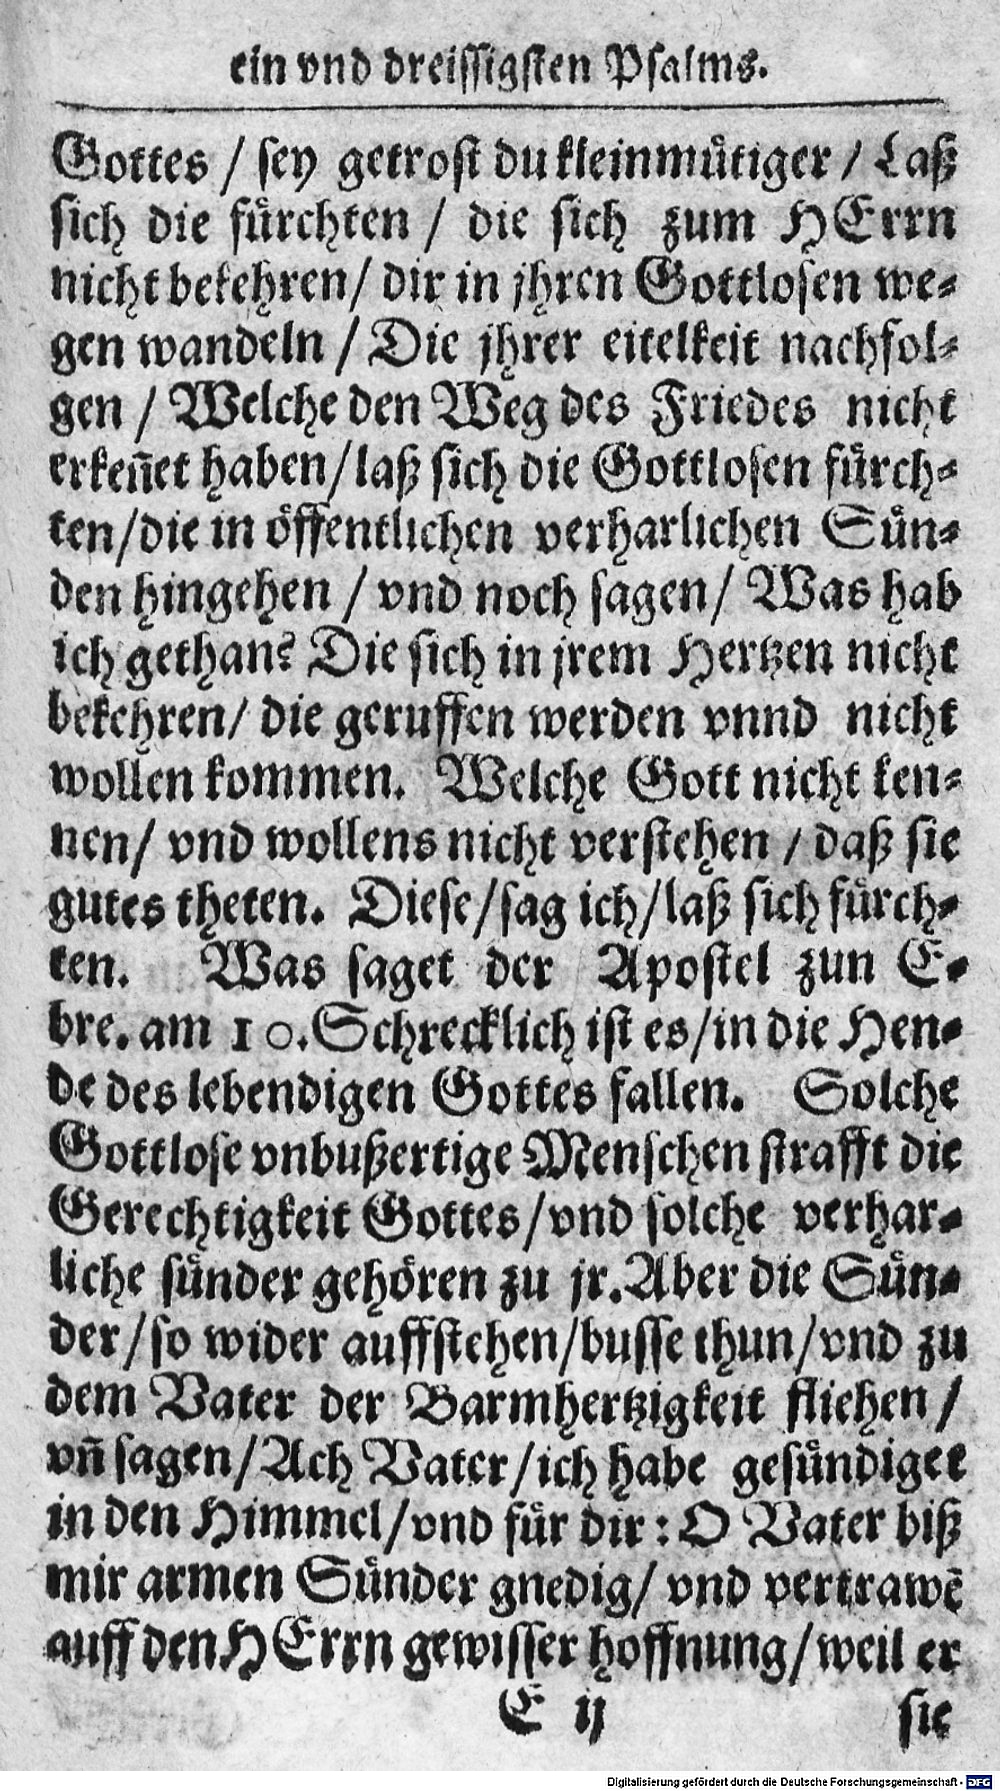 ein vnd dreissigsten Psalms.
Gottes / sey getrost du kleinmütiger / Laß
sich die fürchten / die sich zum HErrn
nicht bekehren/ dir in jhren Gottlosen we-
gen wandeln / Die jhrer eitelkeit nachfol-
gen / Welche den Weg des Friedes nicht
erkeñet haben/laß sich die Gottlosen fürch-
ten/die in öffentlichen verharlichen Sün-
den hingehen / vnd noch sagen/ Was hab
ich gethan? Die sich in jrem Hertzen nicht
bekehren/ die geruffen werden vnnd nicht
wollen kommen. Welche Gott nicht ken-
nen/ vnd wollens nicht verstehen / daß sie
gutes theten. Diese/sag ich/laß sich fürch-
ten. Was saget der Apostel zun E-
bre. am 10. Schrecklich ist es/in die Hen-
de des lebendigen Gottes fallen. Solche
Gottlose vnbußertige Menschen strafft die
Gerechtigkeit Gottes/vnd solche verhar-
liche sünder gehören zu jr. Aber die Sün-
der/so wider auffstehen/busse thun/vnd zu
dem Vater der Barmhertzigkeit fliehen/
vñ sagen/Ach Vater/ich habe gesündiget
in den Himmel/vnd für dir: O Vater biß
mir armen Sünder gnedig/ vnd vertrawẽ
auff den HErrn gewisser hoffnung/weil er
E ij sie
Digitalisierung gefördert durch die Deutsche Forschungsgemeinschaft - DFG